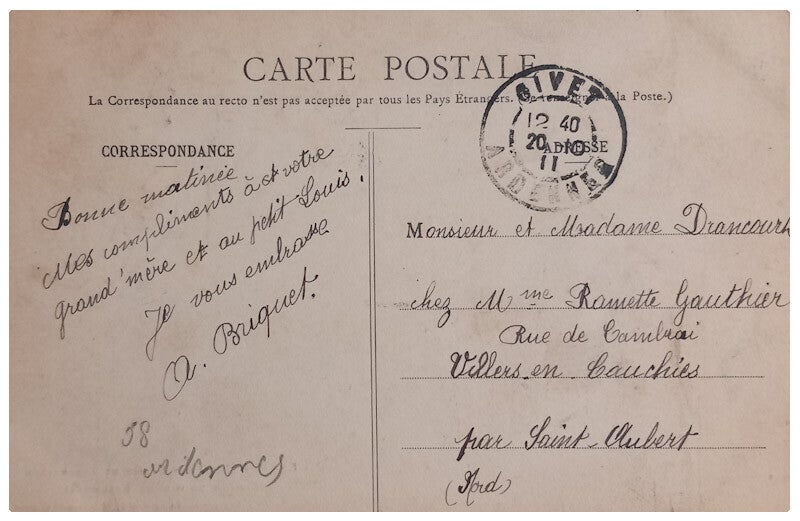 CARTE POSTALE
La Correspondance au recto n'est pas acceptée par tous les Pays Étrangers. (Se renseigner à la Poste.)
GIVET
12 40
20 10
11
ARDENNES
CORRESPONDANCE
Bonne matinée
Mes compliments à et votre
grand'mère et au petit Louis.
Je vous embrasse
A. Briquet.
58
ardennes
ADRESSE
Monsieur et Madame Drancourt
chez Mme Ramette Gauthier
Rue de Cambrai
Villers-en-Cauchies
par Saint-Aubert
(Nord)